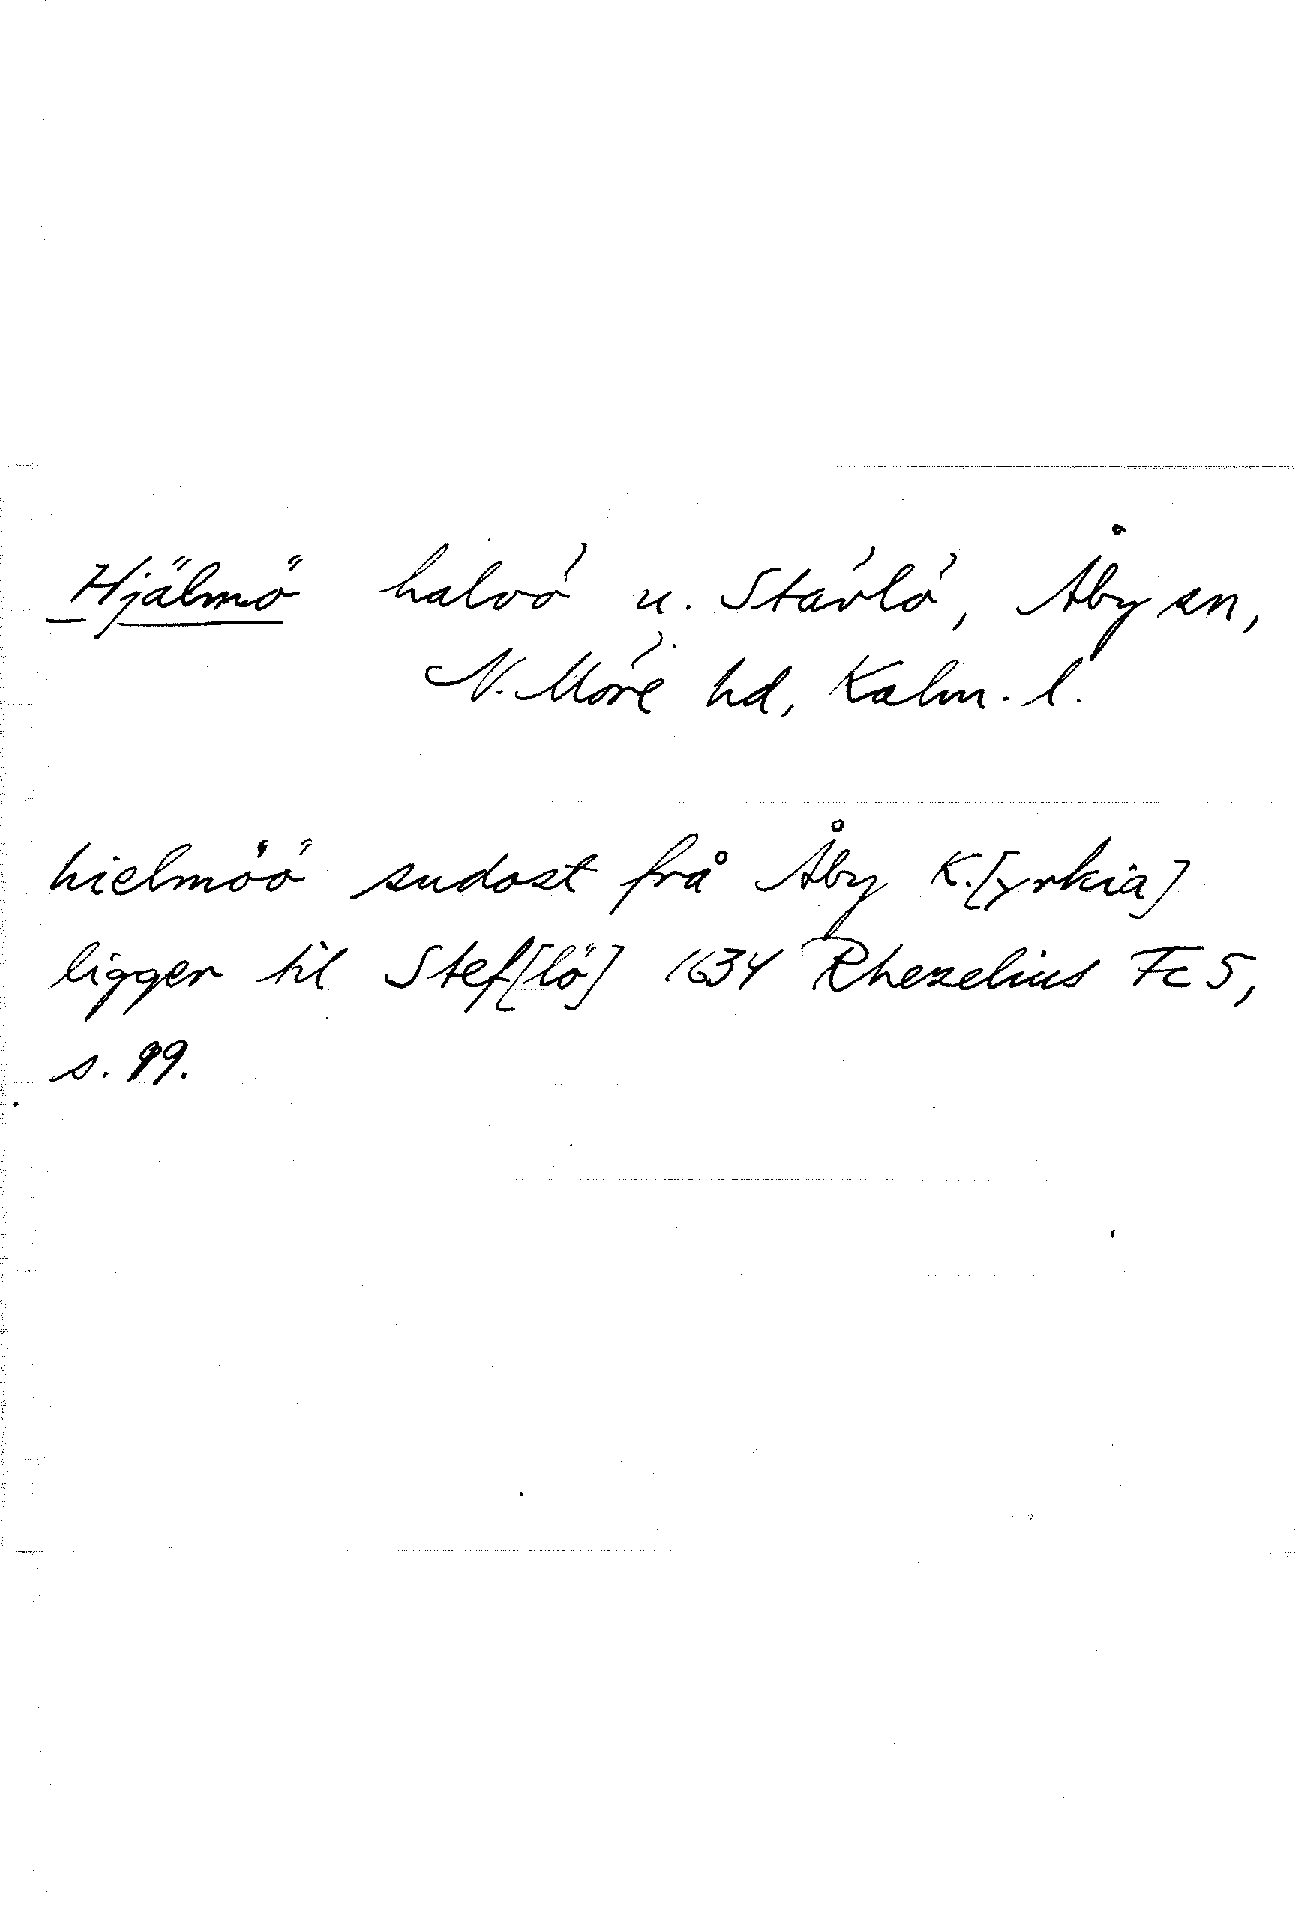 Hjälmö halvö u. Stävlö, Åby sn,
N. Möre hd, Kalm. l.
hielmöö sudost frå Åby K.[yrkia]
ligger til Stef[lö] 1634 Rhezelius Fc 5,
s. 99.